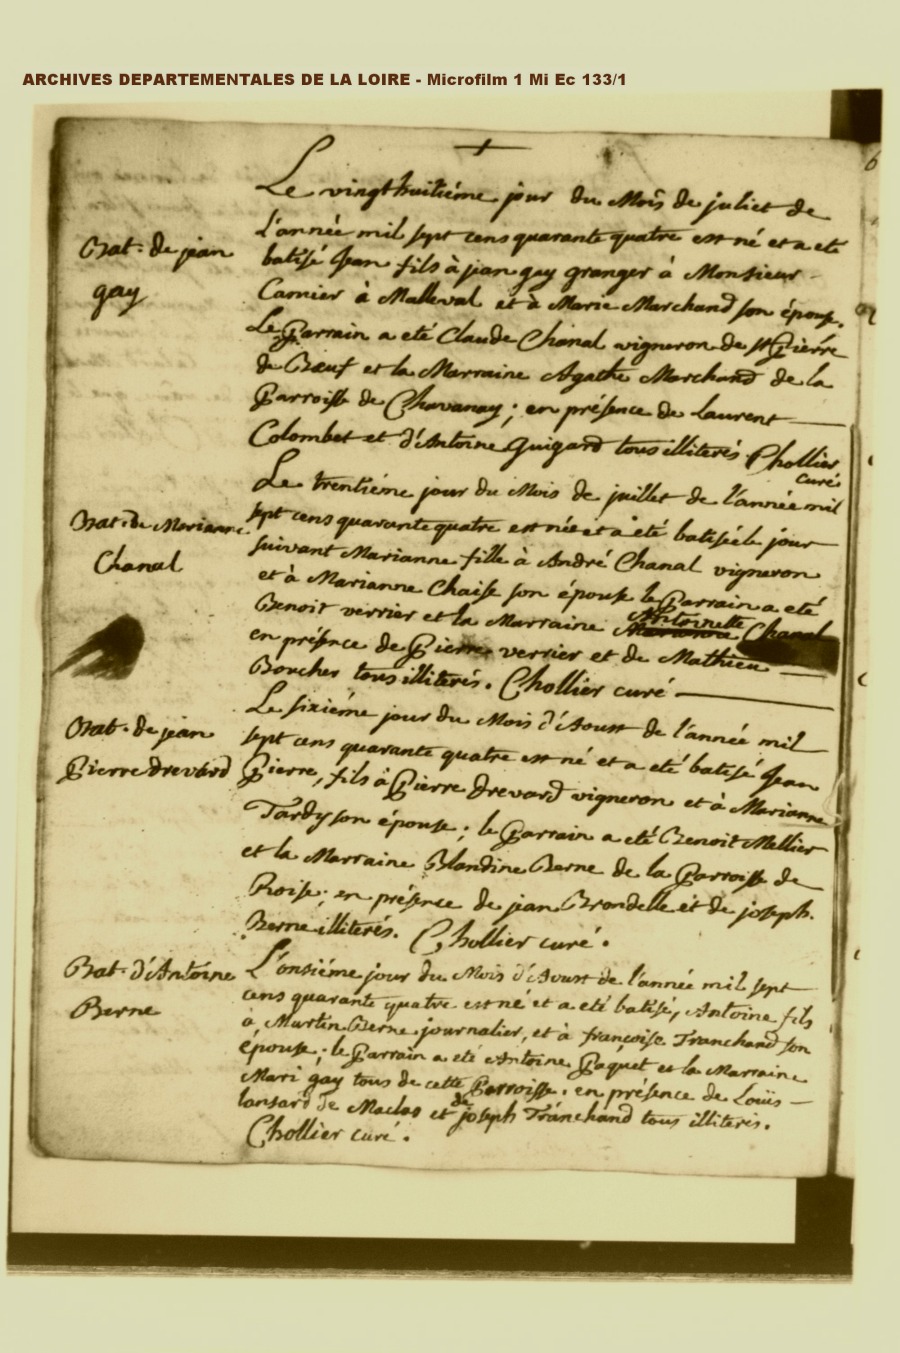 ARCHIVES DEPARTEMENTALES DE LA LOIRE - Microfilm 1 Mi Ec 133/1
6
Bat. de jean
gay
Le vingthuitiéme jour du Mois de juliet de
l'année mil sept cens quarante quatre est né et a eté
batisé Jean fils à jean gay granger à Monsieur
Camier à Malleval et à Marie Marchand son épouse.
Le Parrain a eté Claude Chanal vigneron de st Pierre
de Bœuf et la Marraine Agathe Marchand de la
Parroisse de Chavanay ; en présence de laurent
Colombet et d'Antoine Guigard tous illiterés. Chollier
curé
Bat. de Marianne
Chanal
Le trentiéme jour du Mois de juillet de l'année mil
sept cens quarante quatre est née et a été batisée le jour
suivant Marianne fille à André Chanal vigneron
et à Marianne Chaise son épouse le Parrain a eté
Benoit verrier et la Marraine Marianne Antoinette Chanal
en présence de Pierre verrier et de Mathieu
Boucher tous illiterés. Chollier curé
Bat. de jean
Pierre drevard
Le sixiéme jour du Mois d'Aoust de l'année mil
sept cens quarante quatre est né et a eté batisé Jean
Pierre, fils à Pierre drevard vigneron et à Marianne
Tardy son épouse ; le Parrain a eté Benoit Mellier
et la Marraine Blandine Berne de la Parroisse de
Roise ; en présence de jean Brondelle et de joseph
Berne illiterés. Chollier curé.
Bat. d'Antoine
Berne
L'onsiéme jour du Mois d'Aoust de l'année mil sept
cens quarante quatre est né et a eté batisé, Antoine fils
à Martin Berne journalier, et à françoise Tranchand son
épouse ; le Parrain a eté Antoine Paquet et la Marraine
Mari gay tous de cette Parroisse. en présence de Loüis
lansard de Maclas et de joseph Tranchand tous illiterés.
Chollier curé.